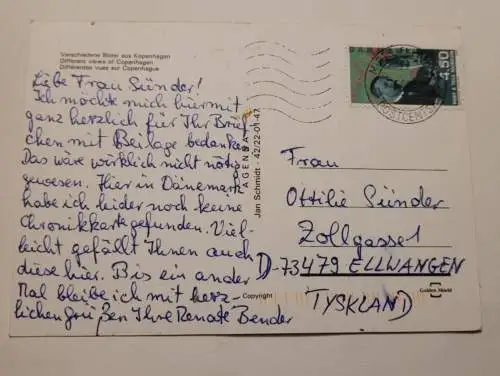 Verschiedene Bilder aus Kopenhagen
Different views of Copenhagen
Différentes vues sur Copenhague
Liebe Frau Sünder!
Ich möchte mich hiermit
ganz herzlich für Ihr Brief-
chen mit Beilage bedanken.
Das wäre wirklich nicht nötig
gewesen. Hier in Dänemark
habe ich leider noch keine
Chronikkarte gefunden. Viel-
leicht gefällt Ihnen auch
diese hier. Bis ein ander
Mal bleibe ich mit herz-
lichen Grüßen Ihre Renate Bender
AGENDA
Jan Schmidt - 42/22-01-47
Copyright
4.50
POSTCENTER
Frau
Ottilie Sünder
Zollgasse 1
D-73479 ELLWANGEN
TYSKLAND
Golden Shield